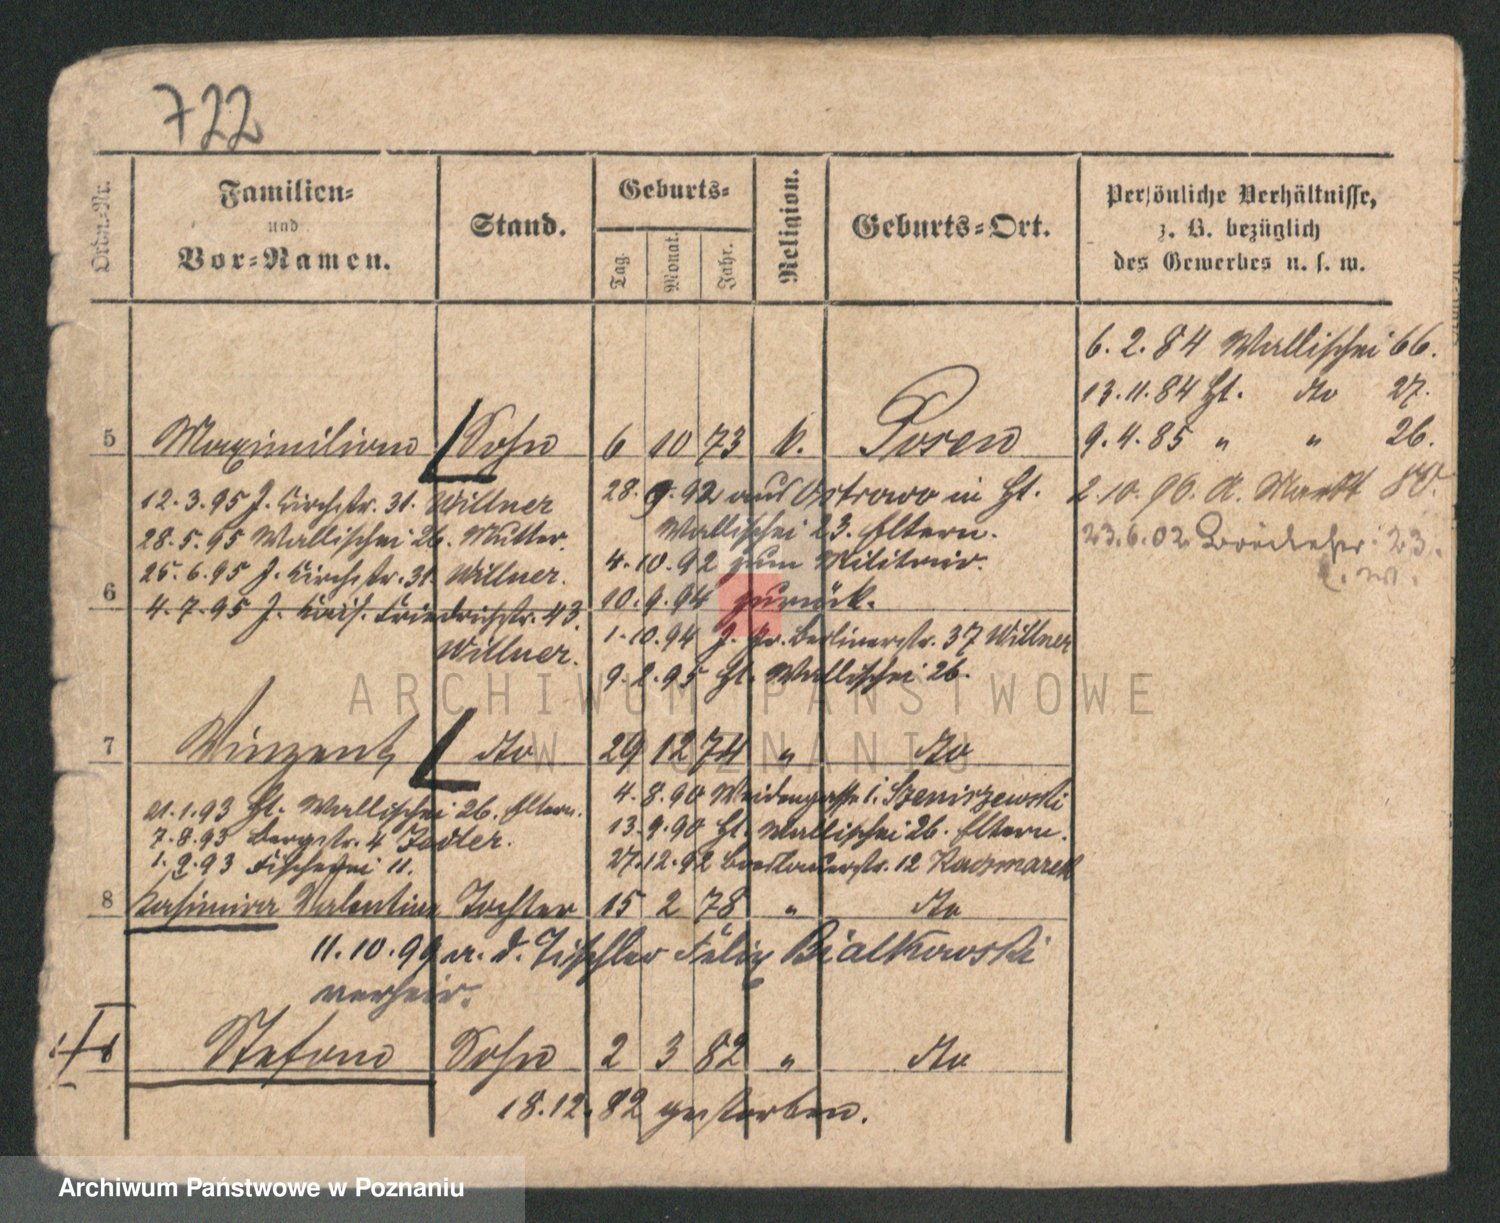 722
Ordn.-Nr.
Familien-
und
Vor-Namen.
Stand.
Geburts-
Tag.
Monat.
Jahr.
Religion.
Geburts-Ort.
Persönliche Verhältnisse,
z. B. bezüglich
des Gewerbes u. s. w.
6. 2. 84 Wallischei 66.
13. 11. 84 Ht. dto 27.
9. 4. 85 " " 26.
5 Maximilian Sohn 6 10 73 k. Posen
2. 10. 96. A. Markt 80.
23. 6. 02 23.
12. 3. 95 J. Kirchstr. 31. Willner
28. 5. 95 Wallischei 26. Mutter.
25. 6. 95 J. Kirchstr. 31 Willner.
6
4. 7. 95 J. Kais. Friedrichstr. 43.
Willner.
28. 9. 92 aus Ostrowo in Ht.
Wallischei 23. Eltern.
4. 10. 92 zum Militair.
10. 9. 94 zurück.
1. 10. 94 J. Gr. Berlinerstr. 37 Willner
9. 2. 95 Ht. Wallischei 26.
ARCHIWUM PAŃSTWOWE
W POZNANIU
7 Vinzent dto 29 12 74 " dto
21. 1. 93 Ht. Wallischei 26. Eltern.
7. 8. 93 Bergstr. 4
1. 9. 93 Fischerei 11.
4. 8. 90 Weidengasse 1. Szeniszewski
13. 9. 90 Ht. Wallischei 26. Eltern.
27. 12. 92 Breslauerstr. 12 Kaczmarek
8 Kasimira Valentine Tochter 15 2 78 " dto
11. 10. 99 a. d. Tischler Felix Bialkowski
verheir.
Stefan Sohn 2 3 82 " dto
18. 12. 82 gestorben.
Archiwum Państwowe w Poznaniu